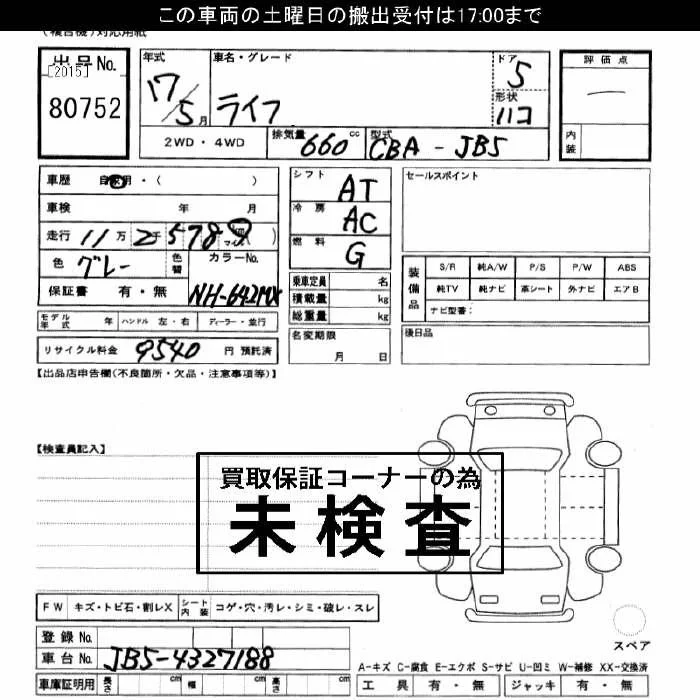 この車両の土曜日の搬出受付は17:00まで
(複合機)対応用紙
出品No. [2015] 80752
年式 17/5月
車名・グレード ライフ
ドア 5
形状 ハコ
評価点 —
内装
2WD・4WD
排気量 660 cc
型式 CBA-JB5
車歴 自家用・( )
車検 年 月
走行 11万2千578 km マイル( )
色 グレー 色替 カラーNo. NH-642MX
保証書 有・無
シフト AT
冷房 AC
燃料 G
乗車定員 名
積載量 kg
総重量 kg
セールスポイント
装備品
S/R 純A/W P/S P/W ABS
純TV 純ナビ 革シート 外ナビ エアB
ナビ型番:
モデル年式 年 ハンドル 左・右 ディーラー・並行
リサイクル料金 9540 円 預託済
名変期限 月 日
後日品
【出品店申告欄(不良箇所・欠品・注意事項等)】
【検査員記入】
買取保証コーナーの為
未検査
FW キズ・トビ石・割レX シート内装 コゲ・穴・汚レ・シミ・破レ・スレ
スペア
登録No.
車台No. JB5-4327188
A-キズ C-腐食 E-エクボ S-サビ U-凹ミ W-補修 XX-交換済
車庫証明用 長さ cm 幅 cm 高さ cm
工具 有・無 ジャッキ 有・無